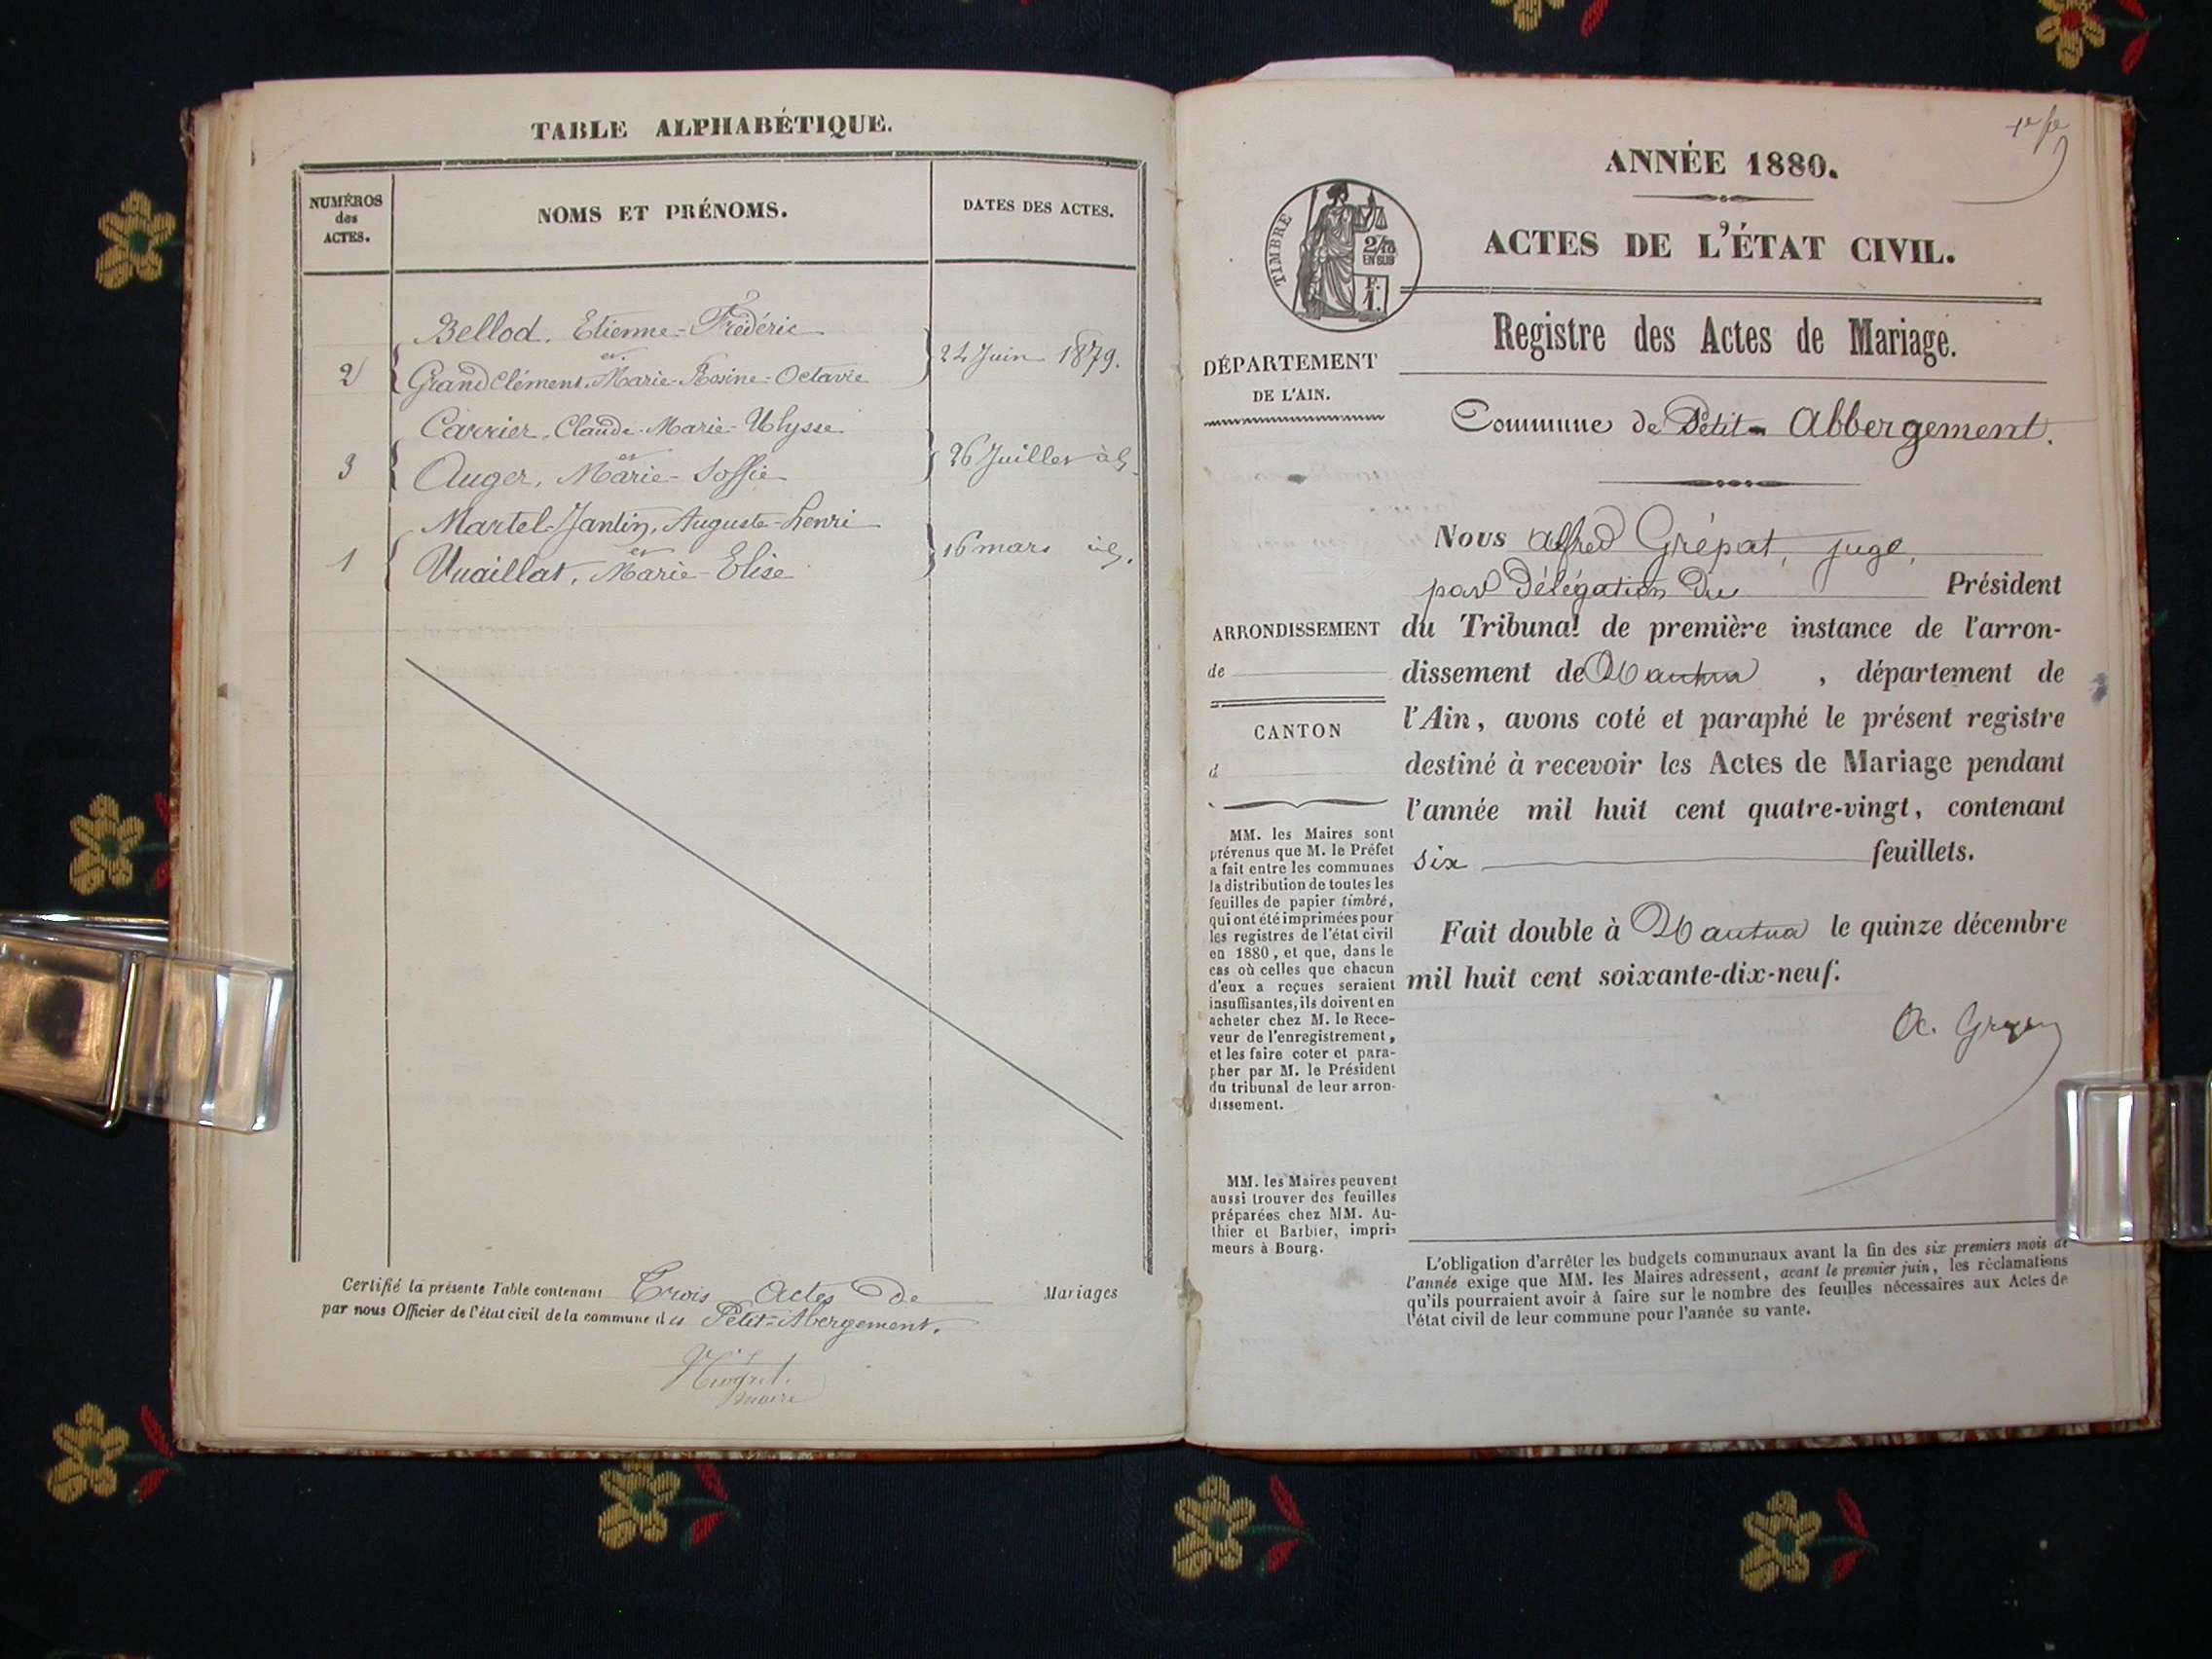 TABLE ALPHABÉTIQUE.
NUMÉROS
des
ACTES.
NOMS ET PRÉNOMS.
DATES DES ACTES.
Bellod, Etienne-Frédéric
et
2 Grandclément, Marie-Rosine-Octavie
24 Juin 1879.
Carrier, Claude-Marie-Ulysse
et
3 Auger, Marie-Soffie
26 Juillet
Martel-Jantin, Auguste-henri
et
1 Vuaillat, Marie-Elise
16 mars
Certifié la présente Table contenant Trois Actes de Mariages
par nous Officier de l'état civil de la commune du Petit-Abergement.
maire
1er
ANNÉE 1880.
ACTES DE L'ÉTAT CIVIL.
TIMBRE
2/10
EN SUS
F.
1.
Registre des Actes de Mariage.
DÉPARTEMENT
DE L'AIN.
Commune de Petit-Abbergement.
Nous Alfred Grépat, juge,
par délégation du Président
ARRONDISSEMENT
de
CANTON
d
du Tribunal de première instance de l'arron-
dissement de Nantua, département de
l'Ain, avons coté et paraphé le présent registre
destiné à recevoir les Actes de Mariage pendant
l'année mil huit cent quatre-vingt, contenant
six feuillets.
Fait double à Nantua le quinze décembre
mil huit cent soixante-dix-neuf.
MM. les Maires sont
prévenus que M. le Préfet
a fait entre les communes
la distribution de toutes les
feuilles de papier timbré,
qui ont été imprimées pour
les registres de l'état civil
en 1880, et que, dans le
cas où celles que chacun
d'eux a reçues seraient
insuffisantes, ils doivent en
acheter chez M. le Rece-
veur de l'enregistrement,
et les faire coter et para-
pher par M. le Président
du tribunal de leur arron-
dissement.
MM. les Maires peuvent
aussi trouver des feuilles
préparées chez MM. Au-
thier et Barbier, impri-
meurs à Bourg.
L'obligation d'arrêter les budgets communaux avant la fin des six premiers mois de
l'année exige que MM. les Maires adressent, avant le premier juin, les réclamations
qu'ils pourraient avoir à faire sur le nombre des feuilles nécessaires aux Actes de
l'état civil de leur commune pour l'année su vante.